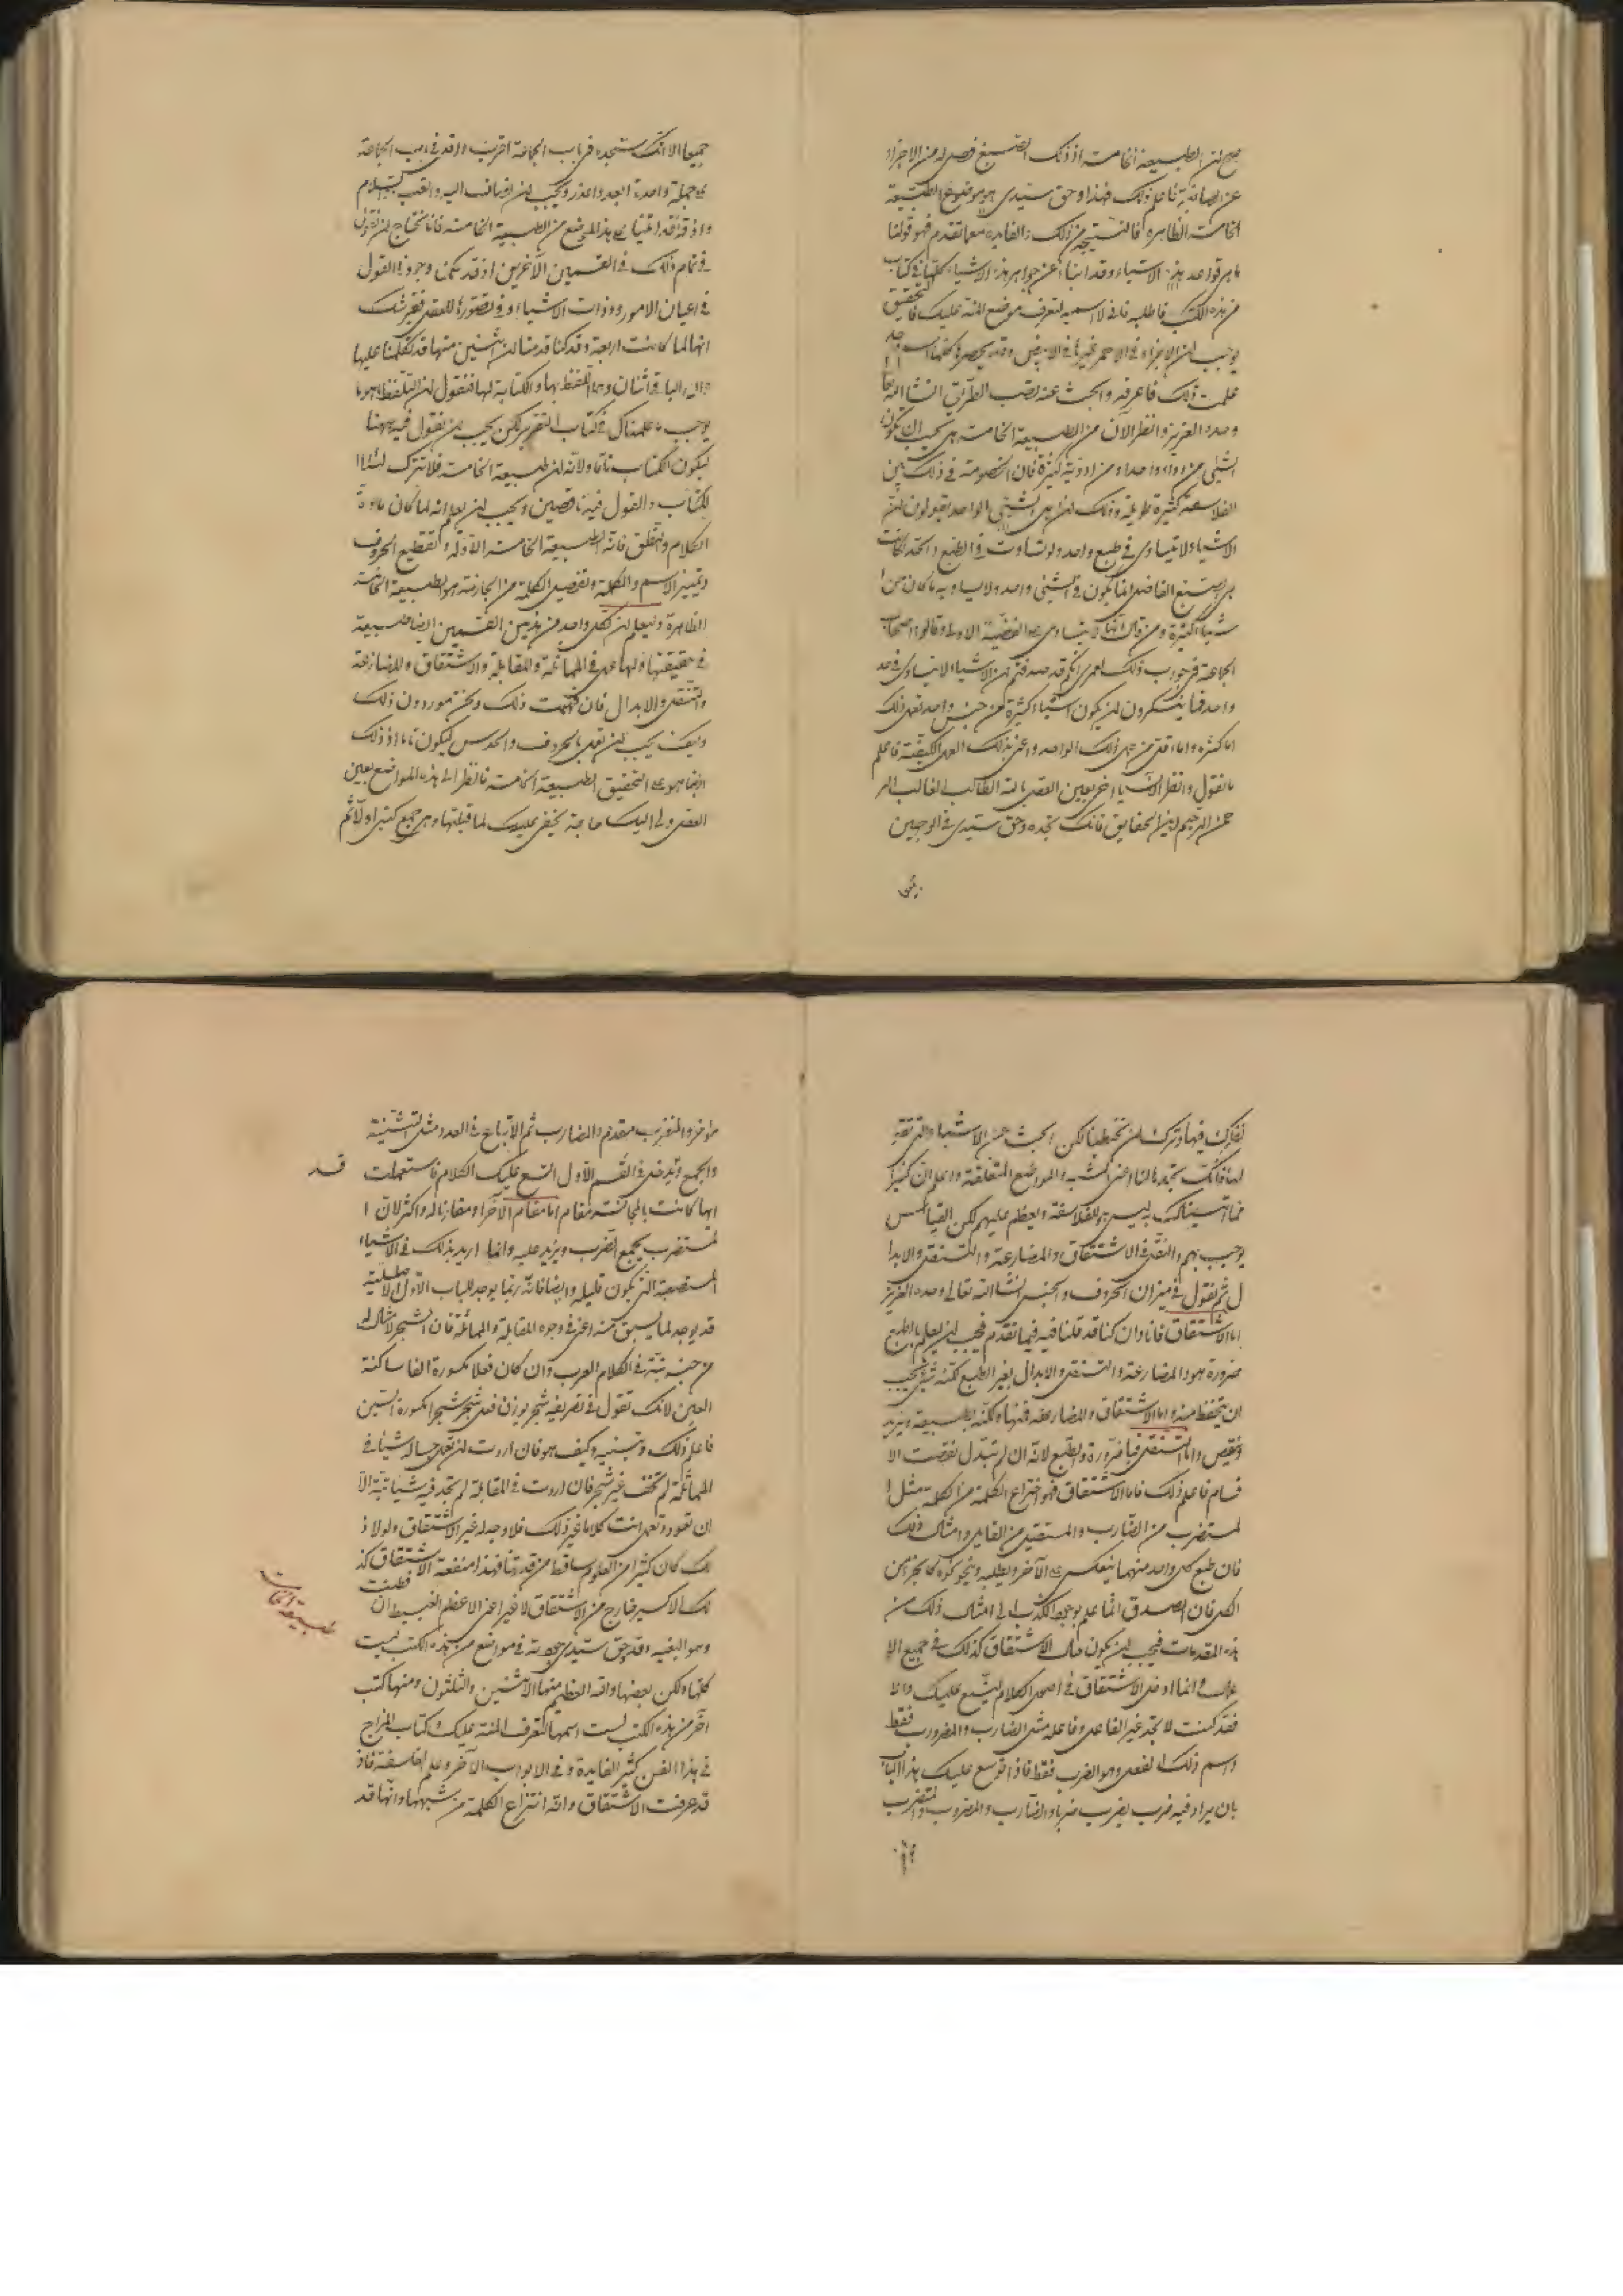 صح لان الطبيعة الخامسة اذ ذلك الصبغ فصل له من الاجزاء
فاعلم ذلك فهذا وحق سيدى هو موضوع الطبيعة
الخامسة الظاهرة فالنتيجة من ذلك والفايدة مما تقدم فهو قولنا
ما هى قواعد هذه الاشياء وقد ابنا عن جواهر هذه الاشياء كلها فى كتاب
من هذه الكتب فاطلبه فانى لا اسميه لتعرف موضع المنة عليك فالتحقيق
يوجب ان الاجزاء فى الاحمر غيرها فى الابيض
علمت ذلك فاعرفه وابحث عنه تصب الطريق انشا الله تعا
وحده العزيز وانظر الآن من الطبيعة الخامسة هل يجب ان تكون
الشئ من دواء واحد او من ادوية كثيرة فان الخصومة فى ذلك بين
الفلاسفة كثيرة طويلة وذلك ان اهل الشئ الواحد يقولون ان
الاشياء لا يتساوى فى طبع واحد ولو تساوت فى الطبع والحد لكانت
الصبغ الفاضل انما يكون فى الشئ واحد ولا يساويه ما كان من ا
شياء كثيرة ومن قال انها لا يتساوى القضية الاولى وقالوا اصحاب
الجماعة فى جواب ذلك لعمرى انكم قد صدقتم ان الاشياء لا يتساوى فى حد
واحد فما ينكرون ان يكون اشياء كثيرة من جنس واحد تعمل ذلك
اما كثره واما اقل من عمل ذلك الواحد واعنى بذلك العمل الكيفية فاعلم
ما نقول وانظر الاشيا اخى بعين العقل بالله الطالب الغالب الر
حمن الرحيم لهذه الحقايق فانك تجده وحق سيدى فى الوجهين
جميعا الا انك ستجده فى باب الجماعة اقرب واقد فى باب الجماعة
جملة واحدة ابعد واعذر ويجب ان اليه والقب والسلام
واذ قد اتينا على هذا الموضع من الطبيعة الخامسة فانا نحتاج ان نقول
فى تمام ذلك فى القسمين الآخرين اذ قد يمكن وجود القول
فى اعيان الامور وذوات الاشياء وفى تصورة للعقل فغير شك
انها لما كانت اربعة وقد كنا قدمنا ان اثنين منها قد تكلمنا عليها
وان الباقى اثنان وهما اللفظ بها والكتابة لها فنقول ان التلفظ هو ما
يوجب ما علمناك فى كتاب التصريف لكن يجب ان نقول فيه ههنا
ليكون الكتاب تاما ولانه ان طبيعة الخامسة فلا نترك
لكتاب والقول فيه ناقصين ويجب ان يعلم انه لما كان مادة
الكلام والنطق فانه الطبيعة الخامسة الاولة وتقطيع الحروف
وتمييز الاسم والكلمة وتفصيل الكلمة من الجازمة هو الطبيعة الخامسة
الظاهرة وليعلم ان لكل واحد من هذين القسمين ايضا طبيعة
فى حقيقتها ولها عمل فى المماثلة والمقابلة والاشتقاق والمضارعة
والتنقل والابدال فان فهمت ذلك ونحن موردون ذلك
وكيف يجب ان تعمل بالحروف والحدس ليكون تاما اذ ذلك
ايضا هو على التحقيق الطبيعة الخامسة فانظر الى هذه المواضع بعين
العقل ولى اليك حاجة يخف عليك لما قبلتها وهى جميع كتبى اولا ثم
تفكرك فيها وترك ان تخطينا لكن ابحث عن الاشياء التى تفتقر
لها فانك تجد مالنا اعنى المشبه والمواضع المتغلقة واعلم ان كثيرا
مما آتيناك به ليس هو للفلاسفة ويعظم عليهم لكن القياس
يوجب بهم والنقل فى الاشتقاق والمضارعة والتنقل والابدا
ل ثم نقول فى ميزان الحروف والجنس انشا الله تعالى وحده العزيز
اما الاشتقاق فانا وان كنا قد قلنا فيه فيما تقدم فيجب ان يعلم بالطبع
ضرورة هو والمضارعة والتنقل والابدال بغير الطبع لكنه شئ يجب
ان يتحفظ منه واما الاشتقاق والمضارعة فمنها ولكنه بطبيعة ويزيد
وينقص واما التنقل فبالضرورة والطبع لانه ان لم تبدل نقصت الا
قسام فاعلم ذلك فاما الاشتقاق فهو اختراع الكلمة من الكلمة مثل ا
لمستضرب من الضارب والمستقيل من القايل وامثال ذلك
فان طبع كل واحد منهما ينعكس على الآخر ويطلبه وينحو نحوه كالجزء من
الكل فان الصدق انما علم بوجود الكذب الى امثال ذلك من
هذه المقدمات فيجب ان يكون حال الاشتقاق كذلك فى جميع الا
عمال وانما ادخل الاشتقاق فى اصل الكلام ليتسع عليك والا
فقد كنت لا تجد غير الفاعل وفاعله مثل الضارب والمضروب فقط
واسم ذلك الفعل وهو الضرب فقط فاذا توسع عليك بهذا الباب
بان يزاد فيه ضرب يضرب ضربا والضارب والمضروب والمستضرب
متواخر والمتضرب متقدم والمضارب ثم الاتباع فى العدد مثل التثنية
والجمع ويدخل فى القسم الاول اتسع عليك الكلام فاستعملت قد
ايها كانت بالمجانسة مقام اما مقام الآخر او مقارنا له واكثر لان ا
لمستضرب يجمع الضرب ويزيد عليه وانما اريد بذلك فى الاشياء
المستصعبة التى يكون قليله وايضا فانه ربما يوجد للباب الاول الاصلية
قد يوجد لما يسبق منه اعنى فى وجوه المقابلة والمماثلة فان الشجر لا مثال له
من جنسه بتة فى الكلام العرب وان كان فعلا مكسورة الفا ساكنة
العين لانك تقول فى تصريفه شجر بوزن فعل شجر شجرا مكسورة الشين
فاعلم ذلك وتبينه وكيف هو فان اردت ان تعمل حياله شيئا فى
المماثلة لم تخف غير شجر فان اردت فى المقابلة لم تجد فيه شيئا بتة الا
ان تعود وتعمل انت كلاما غير ذلك فلا وجد له غير الاشتقاق ولولا ذ
لك كان كثيرا من العلوم ساقطا من قدرتنا فهذا منفعة الاشتقاق كذ
لك الاكسير خارج من الاشتقاق لا غير اعنى الاعظم البسيط ان فطنت
وهو البغية وقد وحق سيدى فى مواضع من هذه الكتب ليست
كلها ولكن بعضها والله العظيم منها الاثنين والثلثون ومنها كتب
اخر من هذه الكتب لست اسمها لتعرف المنة عليك وكتاب المزاج
فى هذا الفن كثير الفايدة وفى الابواب الآخر وعلم الفلسفة فاذ
قد عرفت الاشتقاق وانه انتزاع الكلمة من شبهها وانها قد
طبيعة الخامسة